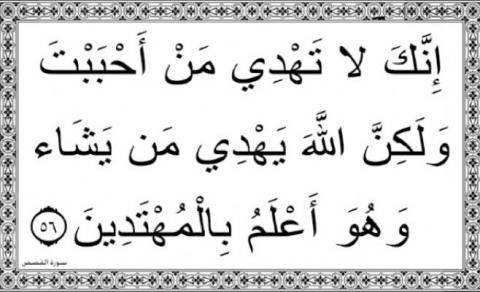 إِنَّكَ لا تَهْدِي مَنْ أَحْبَبْتَ
وَلَكِنَّ اللَّهَ يَهْدِي مَن يَشَاء
وَهُوَ أَعْلَمُ بِالْمُهْتَدِينَ ٥٦
سورة القصص